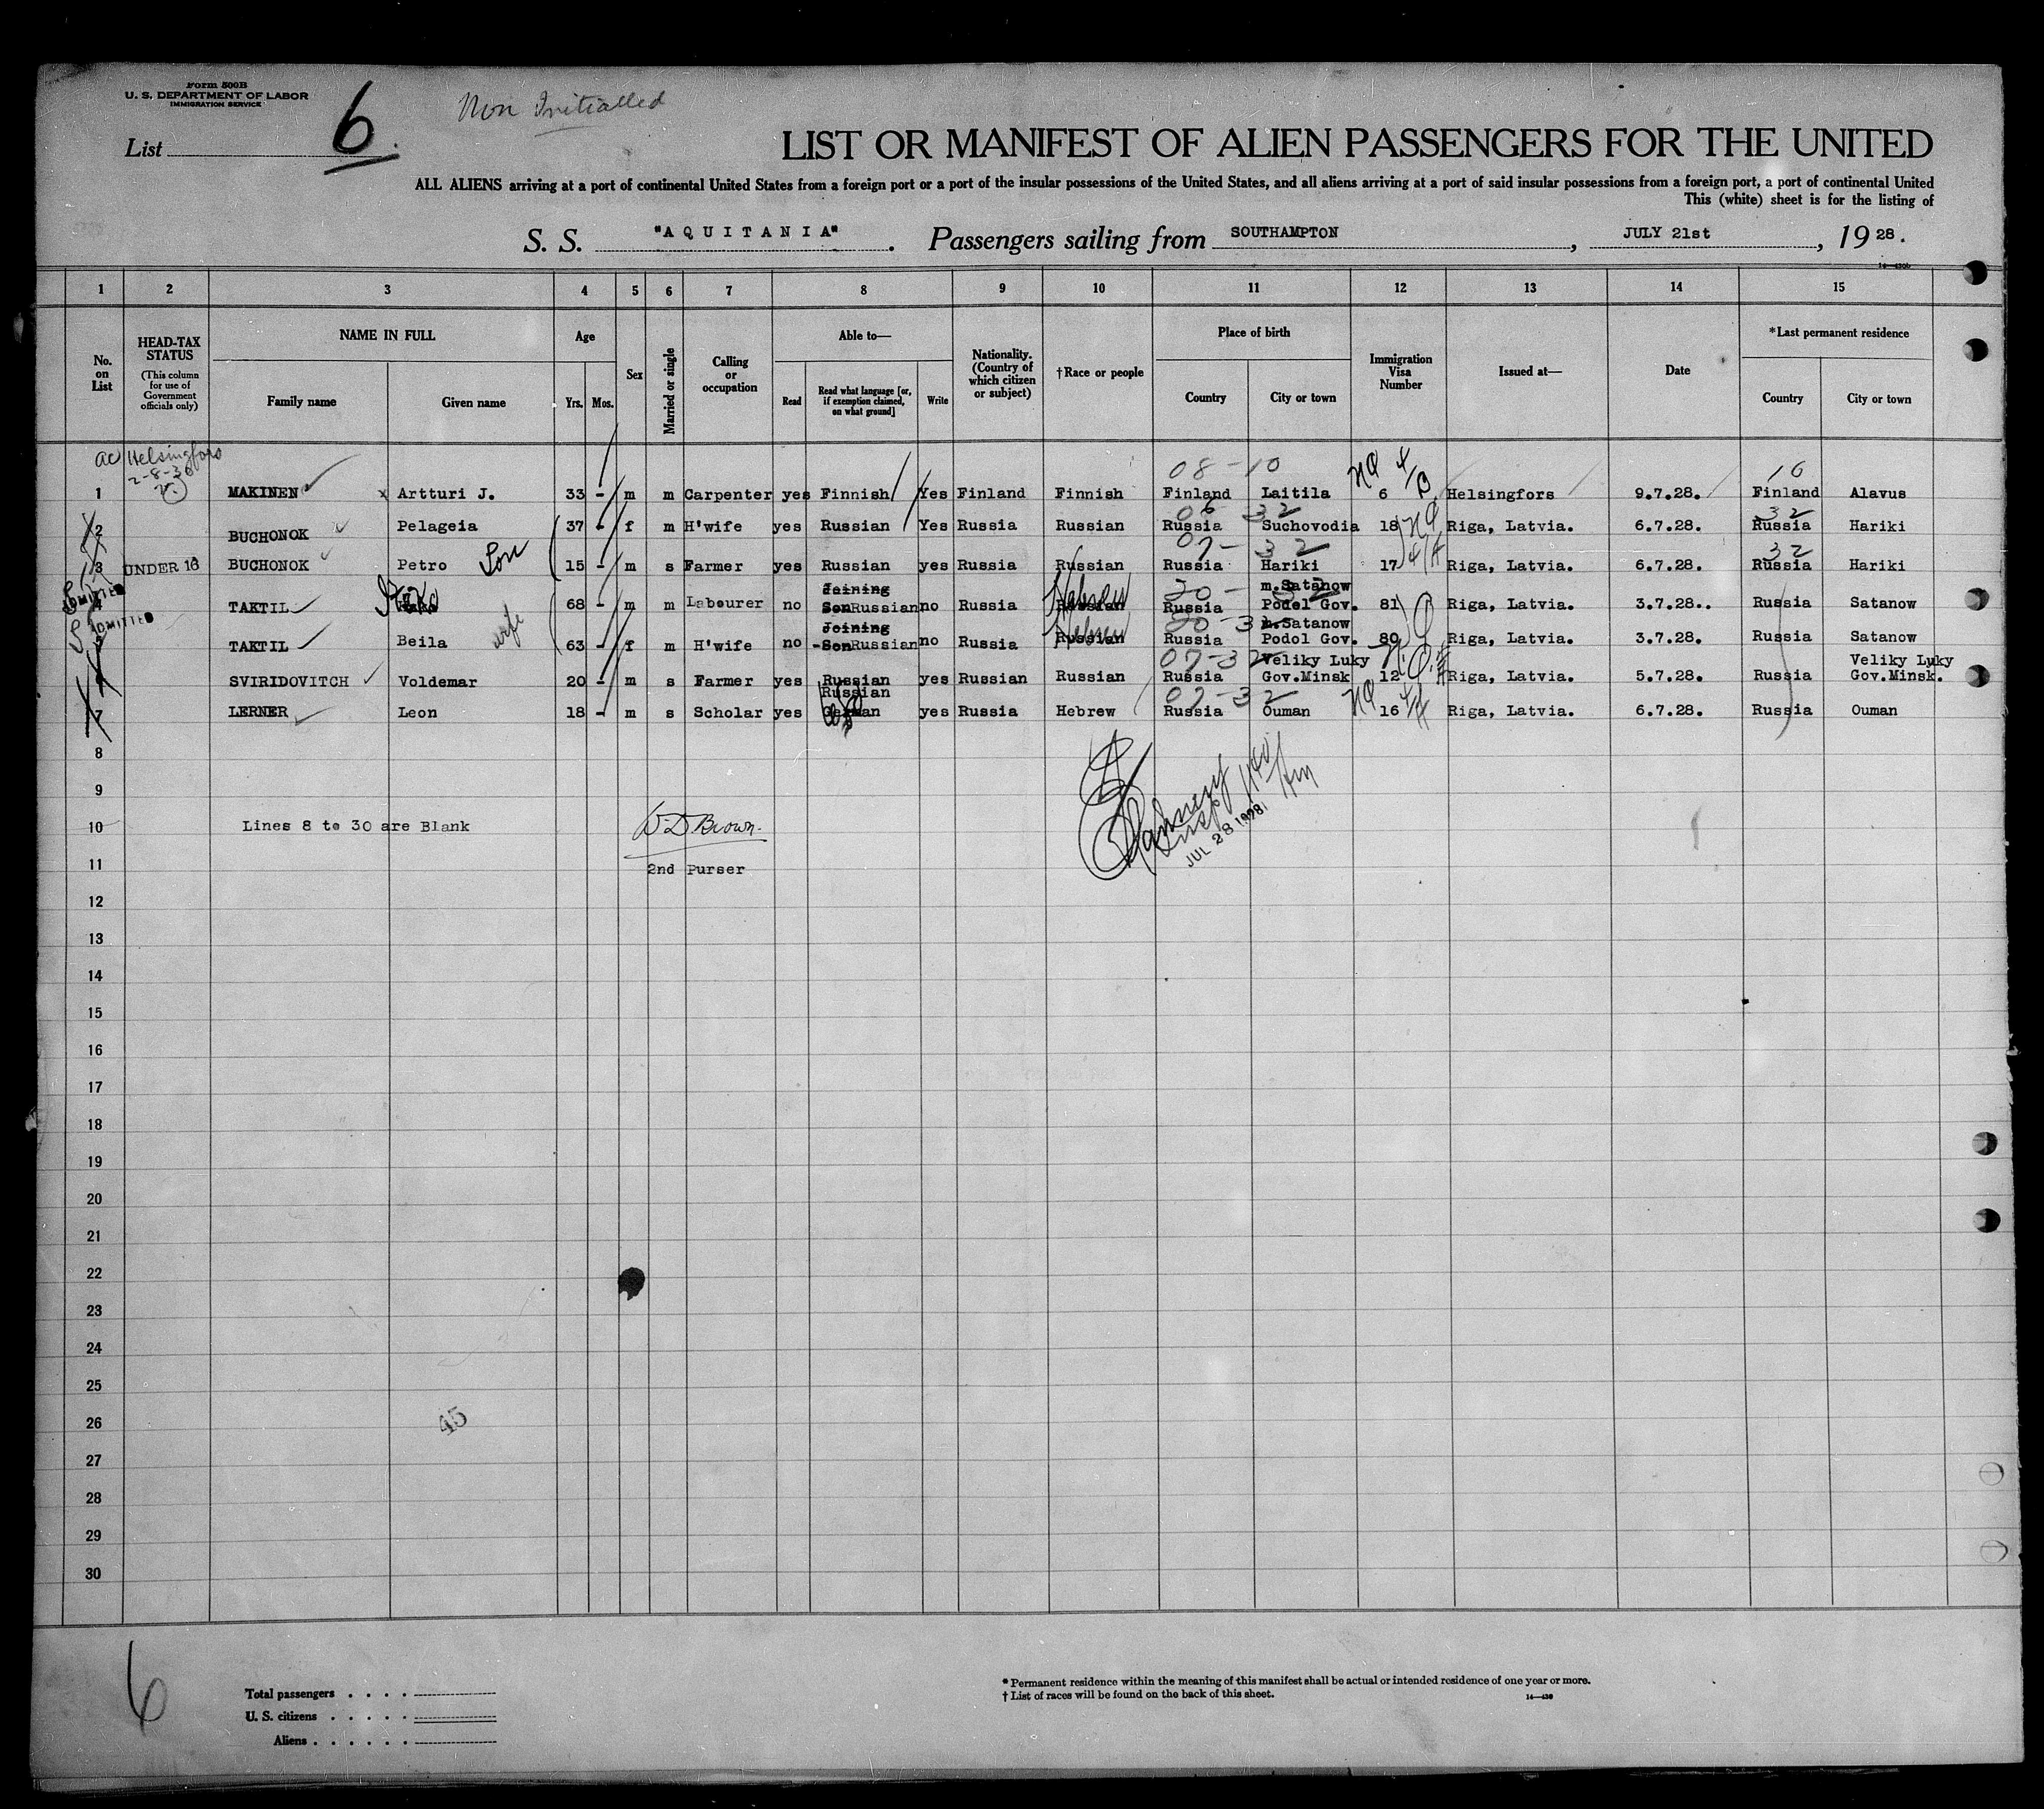 Form 500B
U. S. DEPARTMENT OF LABOR
IMMIGRATION SERVICE
List 6.
Non Initialled
LIST OR MANIFEST OF ALIEN PASSENGERS FOR THE UNITED
ALL ALIENS arriving at a port of continental United States from a foreign port or a port of the insular possessions of the United States, and all aliens arriving at a port of said insular possessions from a foreign port, a port of continental United
This (white) sheet is for the listing of
S. S. "AQUITANIA". Passengers sailing from SOUTHAMPTON, JULY 21st, 1928.
1 2 3 4 5 6 7 8 9 10 11 12 13 14 15
No. on List
HEAD-TAX STATUS
(This column for use of Government officials only)
NAME IN FULL
Family name Given name
Age
Yrs. Mos.
Sex
Married or single
Calling or occupation
Able to—
Read Read what language [or, if exemption claimed, on what ground] Write
Nationality. (Country of which citizen or subject)
†Race or people
Place of birth
Country City or town
Immigration Visa Number
Issued at—
Date
*Last permanent residence
Country City or town
Helsingfors
08-10 10
1 MAKINEN Artturi J. 33 - m m Carpenter yes Finnish Yes Finland Finnish Finland Laitila 6 Helsingfors 9.7.28. Finland Alavus
06 32 32
2 BUCHONOK Pelageia 37 - f m H'wife yes Russian Yes Russia Russian Russia Suchovodia 18 Riga, Latvia. 6.7.28. Russia Hariki
07-32 32
3 UNDER 16 BUCHONOK Petro Son 15 - m s Farmer yes Russian yes Russia Russian Russia Hariki 17 Riga, Latvia. 6.7.28. Russia Hariki
ADMITTED Joining 20-32 m.Satanow
4 TAKTIL 68 - m m Labourer no Son Russian no Russia Hebrew Russian Russia Podol Gov. 81 Riga, Latvia. 3.7.28.. Russia Satanow
ADMITTED Joining 20-3 m.Satanow
5 TAKTIL Beila wife 63 - f m H'wife no -Son Russian no Russia Hebrew Russian Russia Podol Gov. 80 Riga, Latvia. 3.7.28. Russia Satanow
07-32 Veliky Luky Veliky Luky
SVIRIDOVITCH Voldemar 20 - m s Farmer yes Russian yes Russian Russian Russia Gov.Minsk 12 Riga, Latvia. 5.7.28. Russia Gov.Minsk.
Russian 07-32
7 LERNER Leon 18 - m s Scholar yes German yes Russia Hebrew Russia Ouman 16 Riga, Latvia. 6.7.28. Russia Ouman
8
9
10 Lines 8 to 30 are Blank W.D Brown.
JUL 28 1928
11 2nd Purser
12
13
14
15
16
17
18
19
20
21
22
23
24
25
26
45
27
28
29
30
6
Total passengers
U. S. citizens
Aliens
* Permanent residence within the meaning of this manifest shall be actual or intended residence of one year or more.
† List of races will be found on the back of this sheet.
14—430